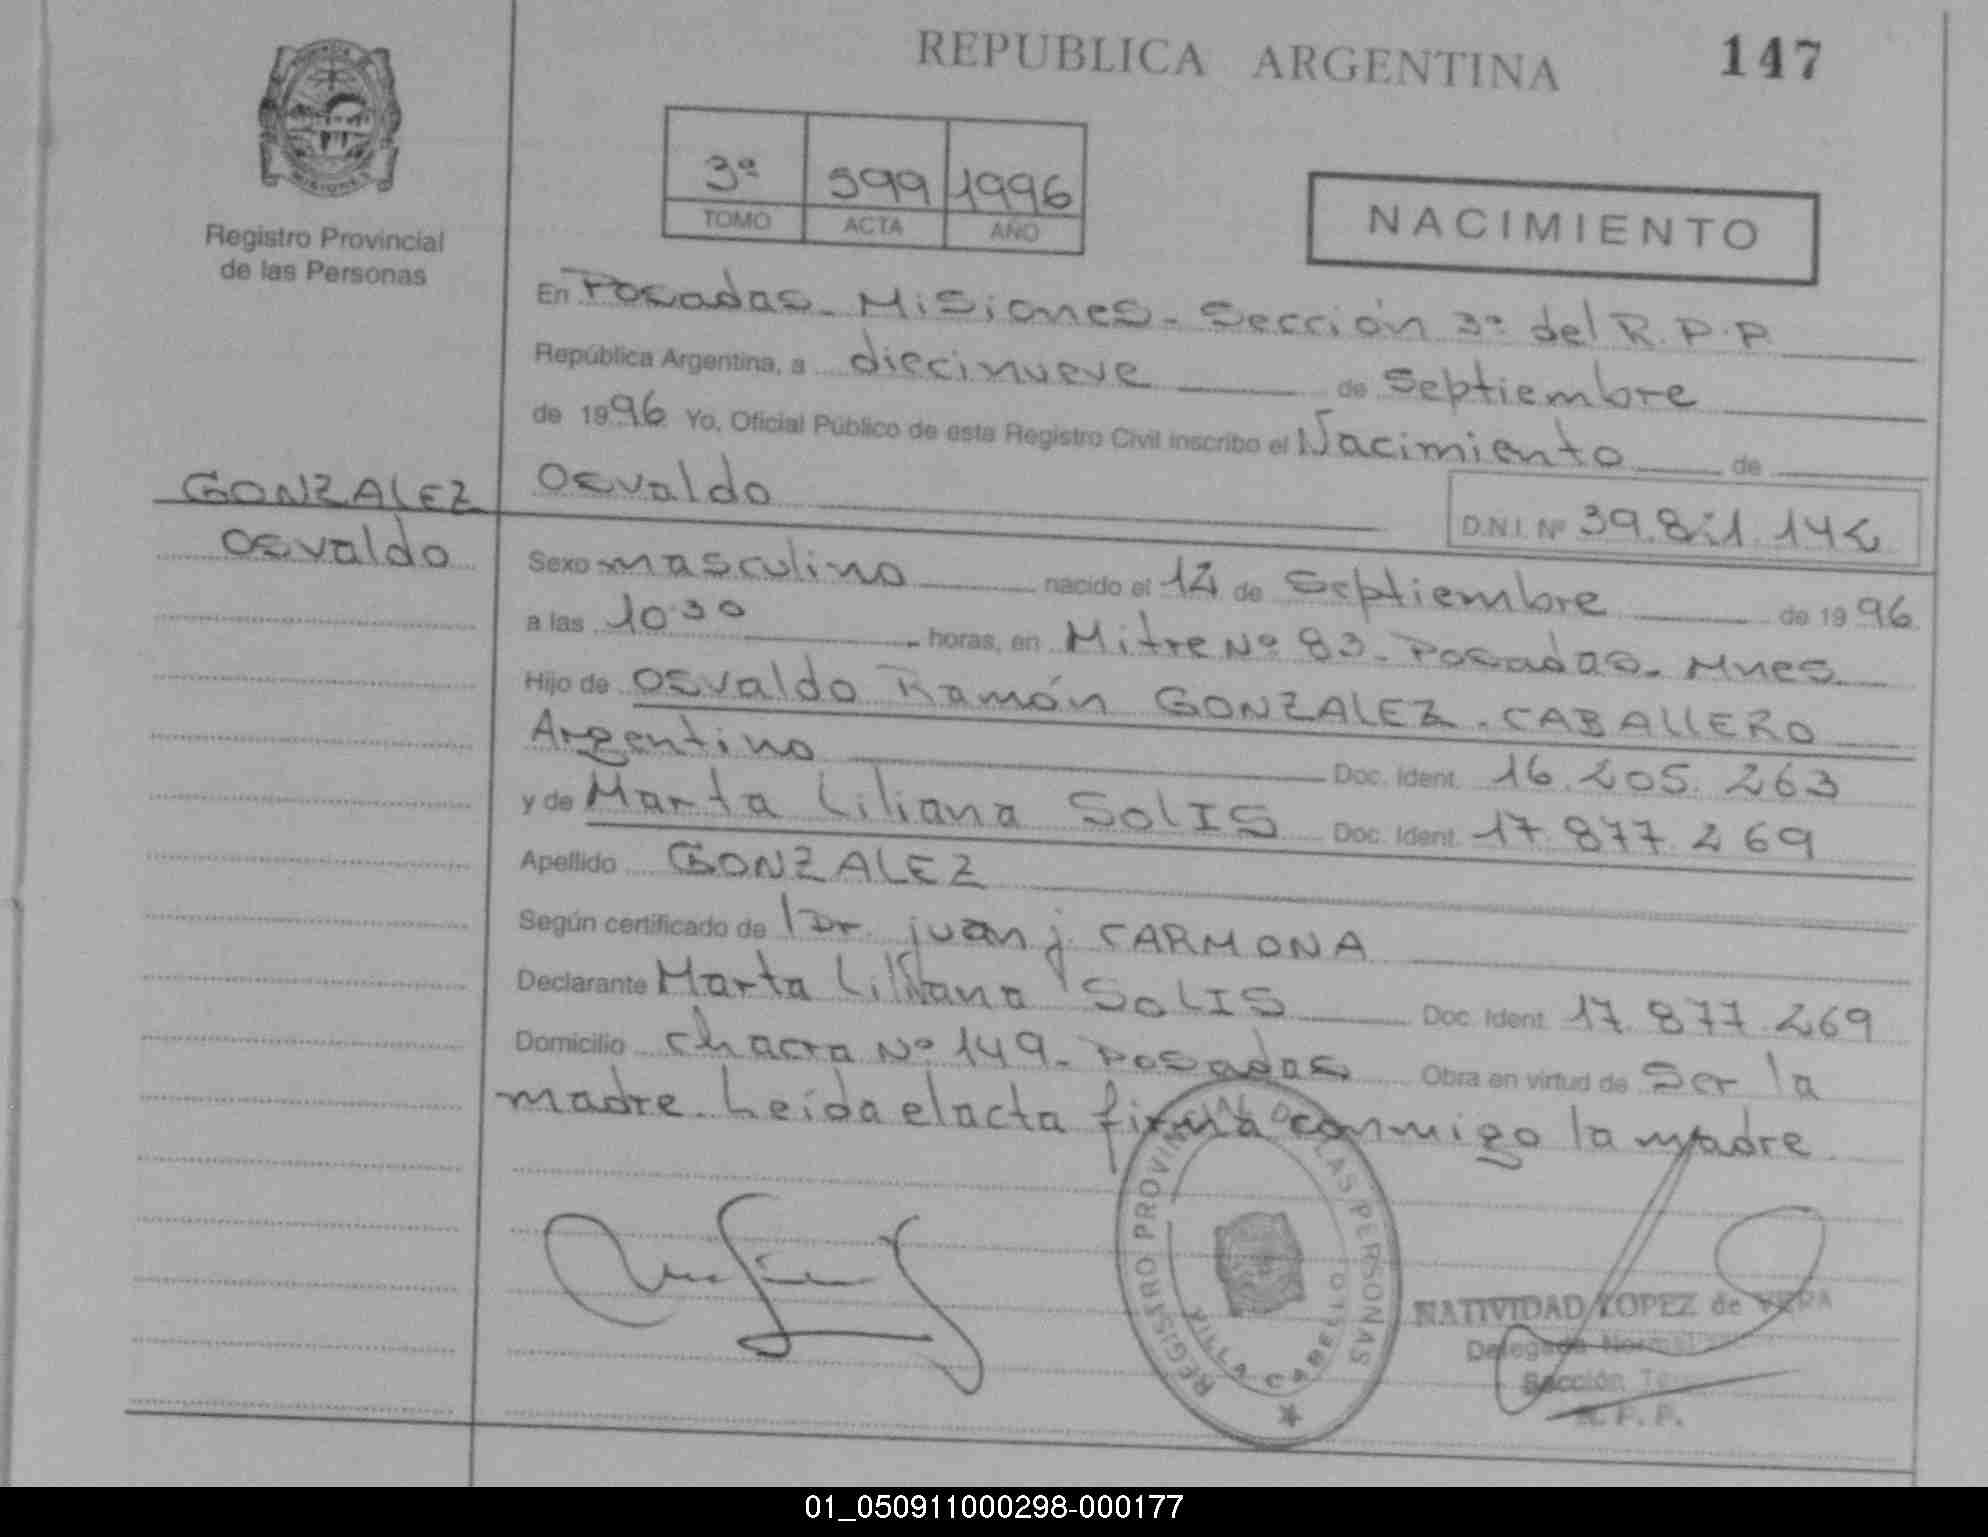 REPUBLICA ARGENTINA
147
PROVINCIA
MISIONES
Registro Provincial
de las Personas
3ª 599 1996
TOMO ACTA AÑO
NACIMIENTO
En Posadas - Misiones - Sección 3ª del R.P.P
República Argentina, a diecinueve de Septiembre
de 1996 Yo, Oficial Público de esta Registro Civil inscribo el Nacimiento de
GONZALEZ
Osvaldo
Osvaldo
D.N.I. Nº
Sexo masculino nacido el de Septiembre de 1996
a las 10:30 horas, en Mitre Nº 83 - Posadas - Mnes
Hijo de Osvaldo Ramón GONZALEZ - CABALLERO
Argentino Doc. Ident. 16.205.263
y de Marta Liliana SOLIS Doc. Ident. 17.877.269
Apellido GONZALEZ
Según certificado de Dr. juan j. CARMONA
Declarante Marta Liliana SOLIS Doc. Ident. 17.877.269
Domicilio chacra Nº 149 - Posadas Obra en virtud de Ser la
madre. Leída el acta firma conmigo la madre
REGISTRO PROVINCIAL DE LAS PERSONAS
VILLA CABELLO
NATIVIDAD LOPEZ de VERA
Sección
R. P. P.
01_050911000298-000177